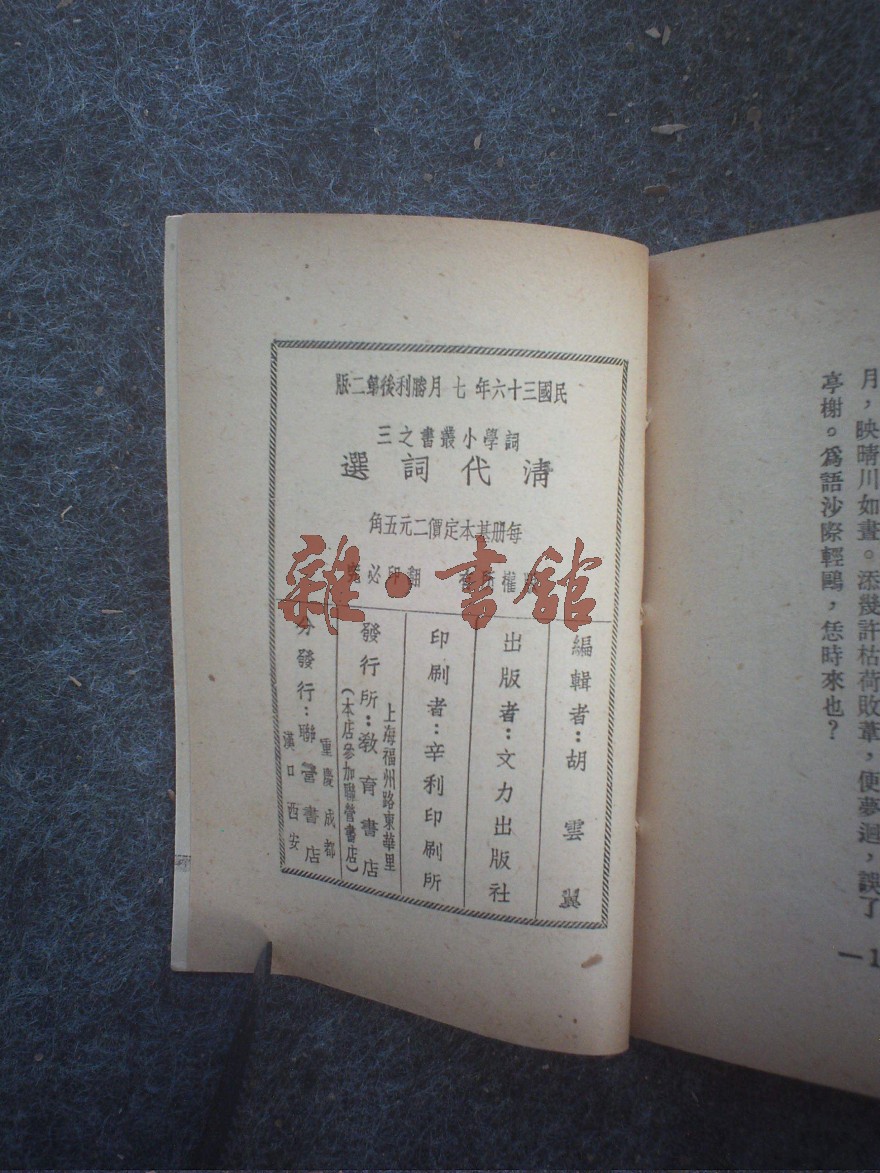 月，映晴川如畫。添幾許枯荷敗葦，便夢迴，誤了
亭榭。爲語沙際輕鷗，恁時來也？
民國三十六年七月勝利後第二版
詞學小叢書之三
清代詞選
每册基本定價二元五角
版權所有 翻印必究
雜·書館
編輯者：胡雲翼
出版者：文力出版社
印刷者：辛利印刷所
上海福州路東華里
發行所：教育書店
（本店參加聯營書店）
重慶成都
分發行：聯營書店
漢口西安